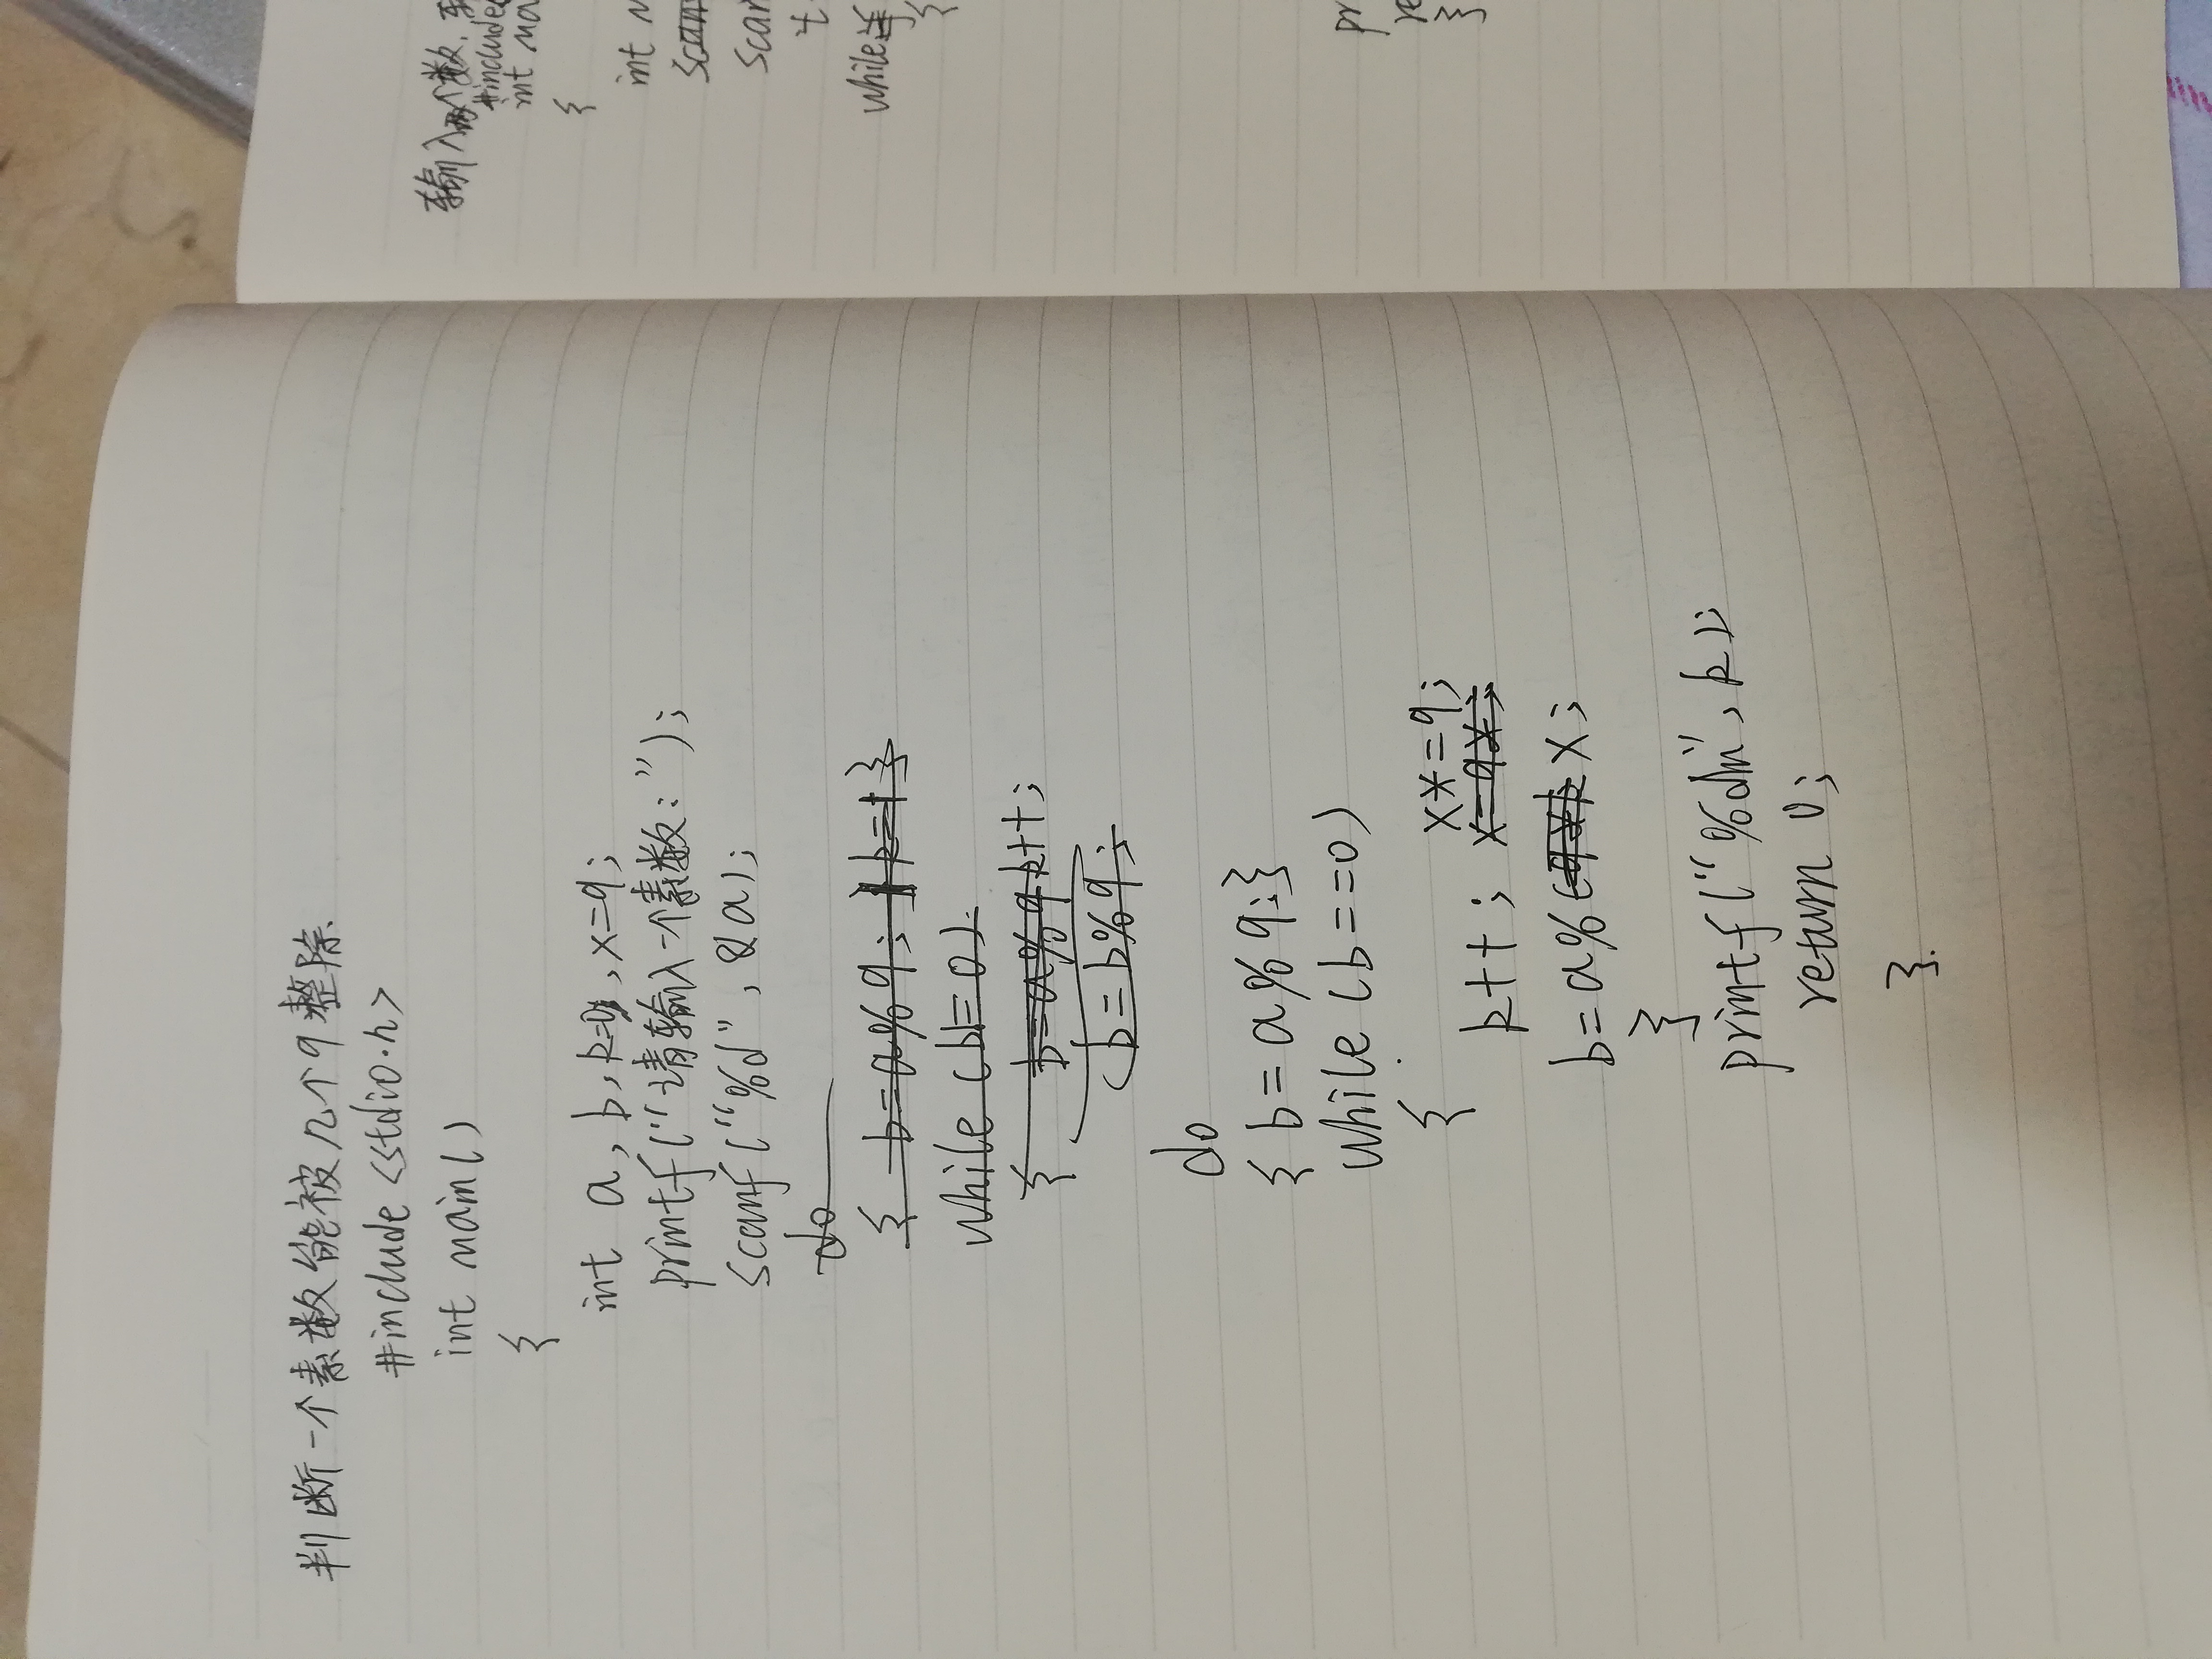 判断一个素数能被几个9整除
#include <stdio.h>
int main()
{
int a, b, k=0, x=9;
printf("请输入一个素数:");
scanf("%d", &a);
do
{ b=a%9;
while (b=0)
{ b=a%9 k++;
b=b%9;
do
{ b=a%9;}
while (b==0)
{ x*=9;
k++; x=9x;
b=a% x;
}
printf("%d\n", k);
return 0;
}
输入两个数,
#include
int ma
{
int
scan
scan
while
{
pr
re
}